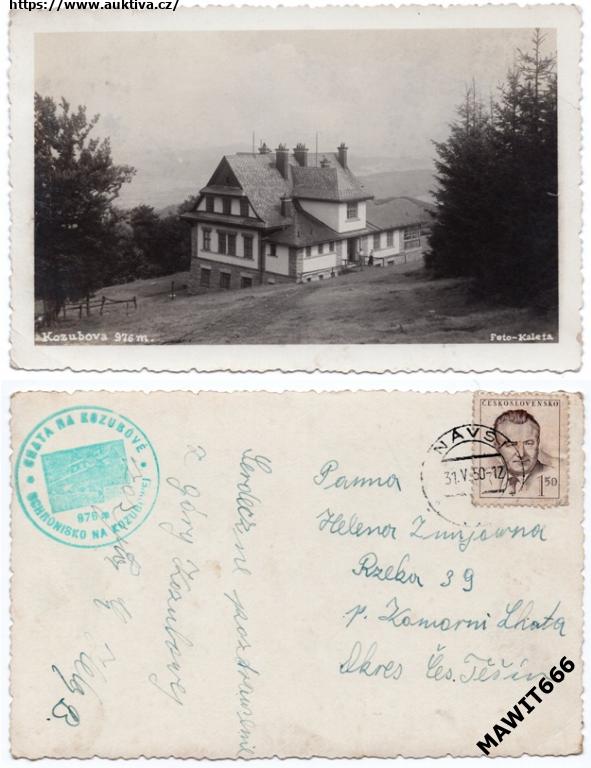 https://www.auktiva.cz/
Kozubova 976m.
Foto-Kaleta
CHATA NA KOZUBOVÉ
976 m
SCHRONISKO NA KOZUBOWEJ
Serdeczne pozdrowienia
z góry Kozubowej
ČESKOSLOVENSKO
1.50
NÁVSÍ
31.V.50-12
Panna
Helena
Rzeka 39
p. Komorní Lhota
Okres Čes. Těšín
MAWIT666